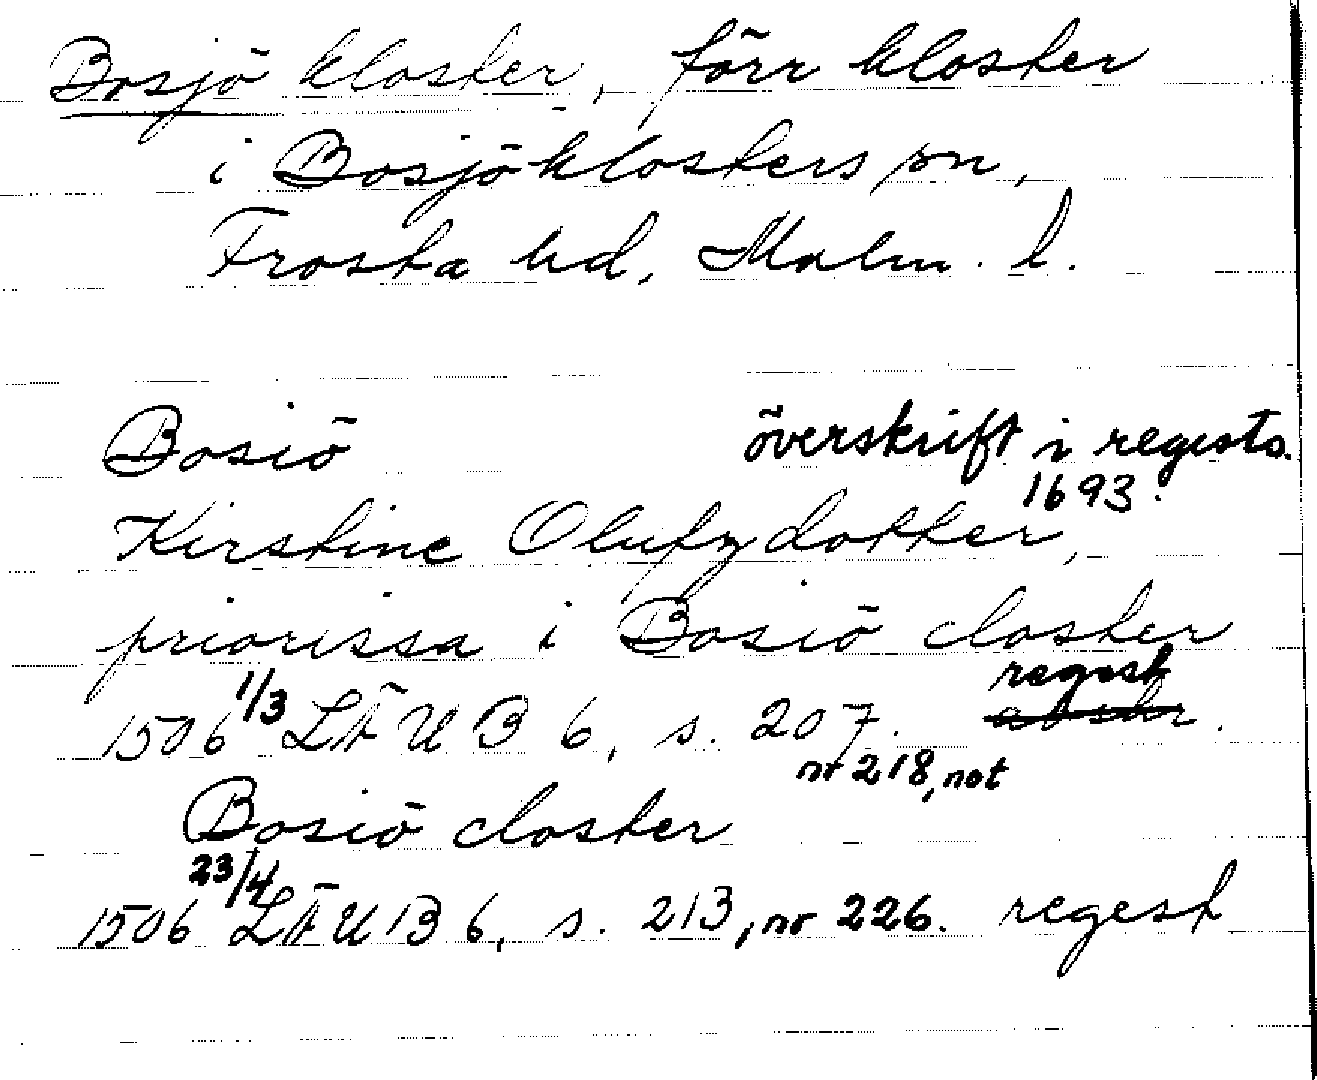 Bosjö kloster, förr kloster
i Bosjöklosters sn,
Frosta hd, Malm. l.
Bosiö överskrift i regests.
1693.
Kirstine Olufzdotter,
priorissa i Bosiö closter
1506 1/3 LÄUB 6, s. 207. regest
nr 218, not
Bosiö closter
1506 23/4 LÄUB 6, s. 213, nr 226. regest